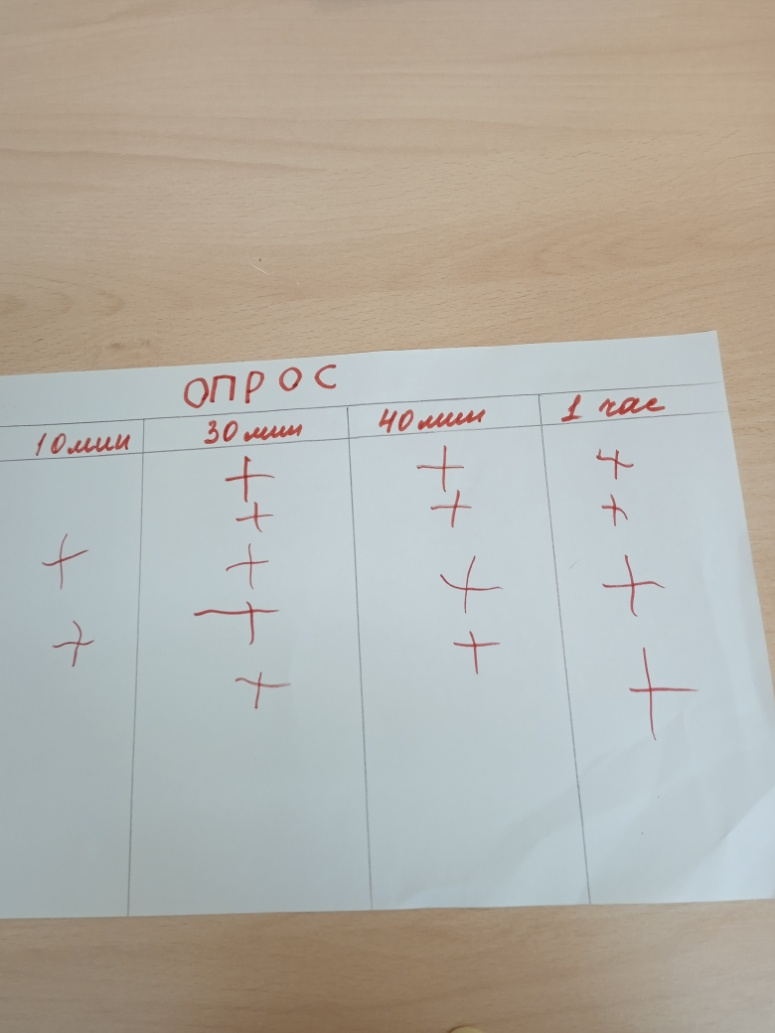 ОПРОС
10мин 30мин 40мин 1 час
+ + +
+ + +
+ + + +
+ + + +
+ +